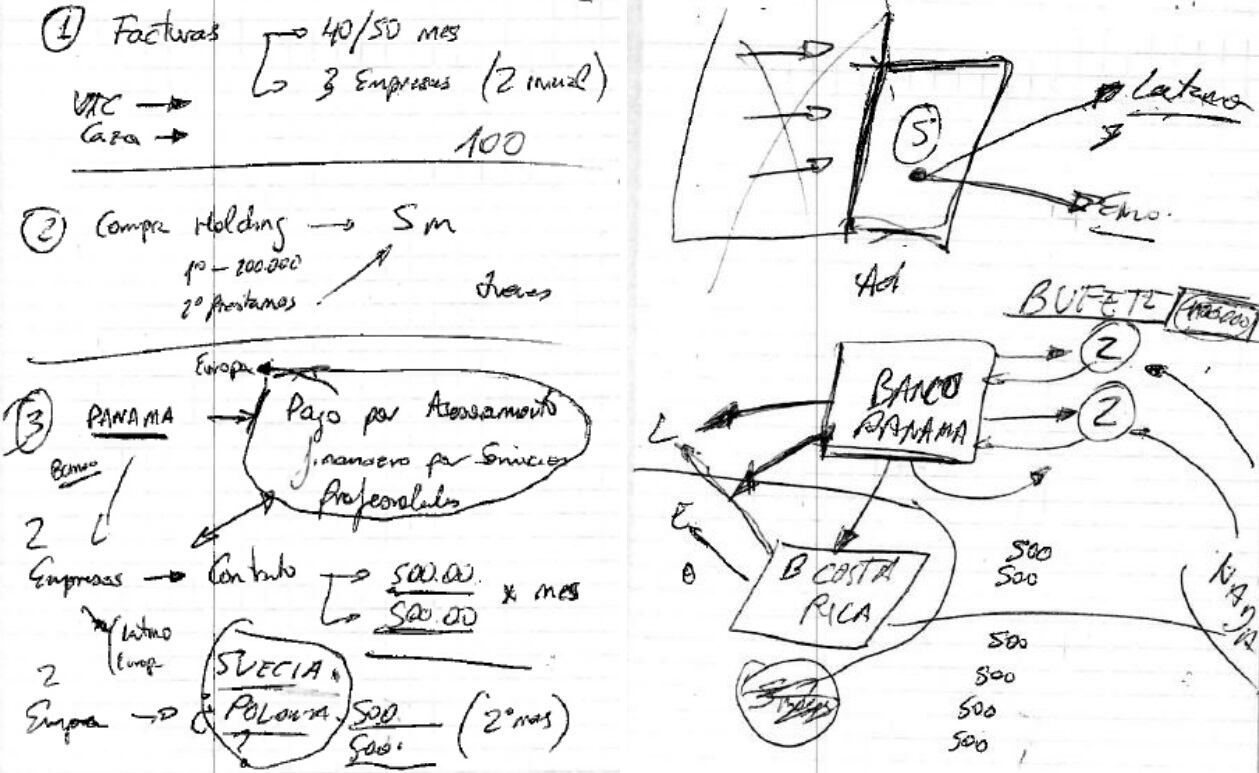 1 Facturas → 40/50 mes
→ 3 Empresas (2 inicial)
VTC →
Caza →
100
2 Compra Holding → 5 m
1º - 200.000
2º Prestamos
Jueves
Europa
3 PANAMA → Pago por Asesoramiento
financiero por Servicios
Profesionales
Banco
2
Empresas → Contrato → 500.00
→ 500.00 x mes
Latino
Europa
2
Empresa → SUECIA
POLONIA
?
500
500. (2º mes)
5
Latino
Adi
BUFETE
BANCO
PANAMA
2
2
L
B COSTA
RICA
500
500
500
500
500
500